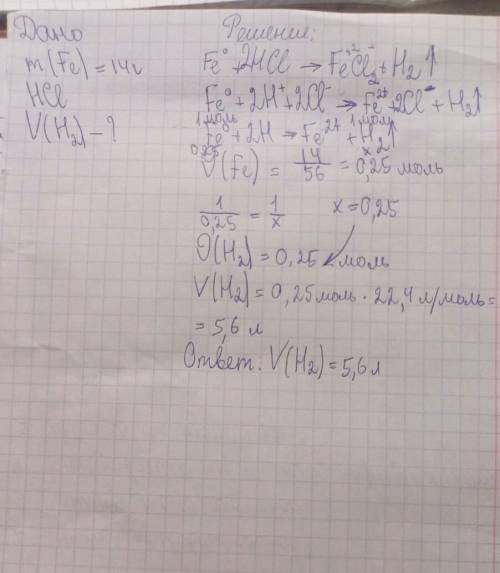 Дано
Решение:
m(Fe) = 14г
HCl
V(H₂) – ?
Fe⁰ + 2HCl → Fe⁺²Cl₂⁻ + H₂↑
Fe⁰ + 2H⁺ + 2Cl⁻ → Fe²⁺ + 2Cl⁻ + H₂↑
1 моль 1 моль
Fe⁰ + 2H → Fe²⁺ + H₂↑
0,25 x
ν(Fe) = 14/56 = 0,25 моль
1/0,25 = 1/x x = 0,25
ν(H₂) = 0,25 моль
V(H₂) = 0,25 моль · 22,4 л/моль =
= 5,6 л
Ответ. V(H₂) = 5,6 л